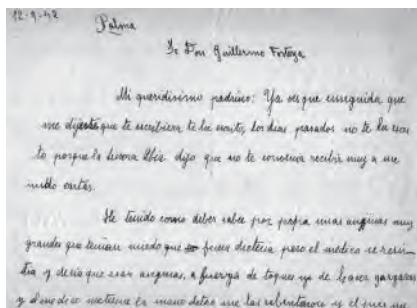 12-9-42
Palma
Sr Don Guillermo Forteza
Mi queridísimo padrino: Ya ves que enseguida que
me dijeste que te escribiera te he escrito, los dias pasados no te he escri
to porque la Señora dijo que no te convenia recibir muy a me
nudo cartas.
He tenido como deber saber por papa unas anginas muy
grandes que tenian miedo que fueran dicteria pero el médico se resis
tia y decia que eran anginas, a fuerza de toques y de hacer gargaras
y el medico meterme la mano me las reventaron y el pues